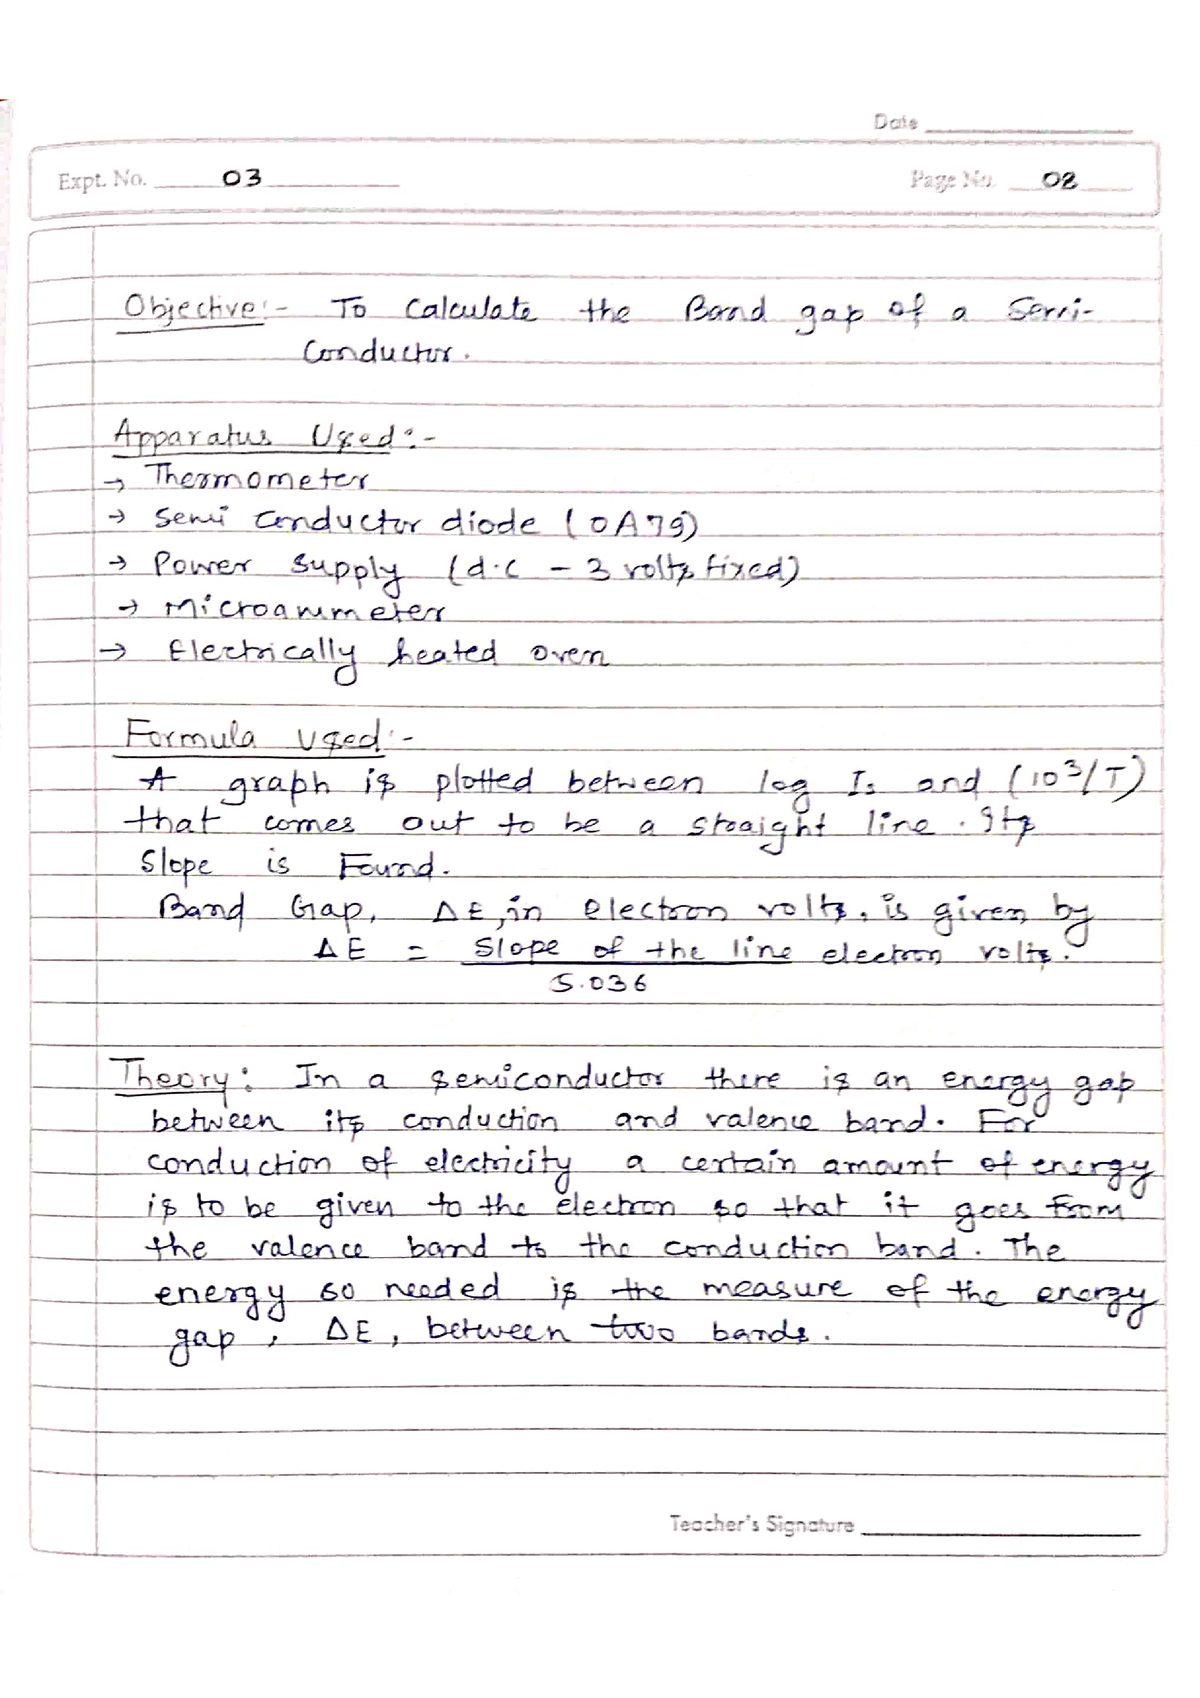 Date
Expt. No. 03
Page No. 02
Objective:- To Calculate the Band gap of a Semi-
Conductor.
Apparatus Used:-
→ Thermometer
→ Semi conductor diode (OA79)
→ Power Supply (d.c - 3 volts fixed)
→ Microammeter
→ Electrically heated oven
Formula Used:-
A graph is plotted between log Is and (10³/T)
that comes out to be a straight line. Its
Slope is Found.
Band Gap, ΔE, in electron volts, is given by
ΔE = Slope of the line electron volts.
5.036
Theory: In a semiconductor there is an energy gap
between its conduction and valence band. For
conduction of electricity a certain amount of energy
is to be given to the electron so that it goes from
the valence band to the conduction band. The
energy so needed is the measure of the energy
gap, ΔE, between two bands.
Teacher's Signature